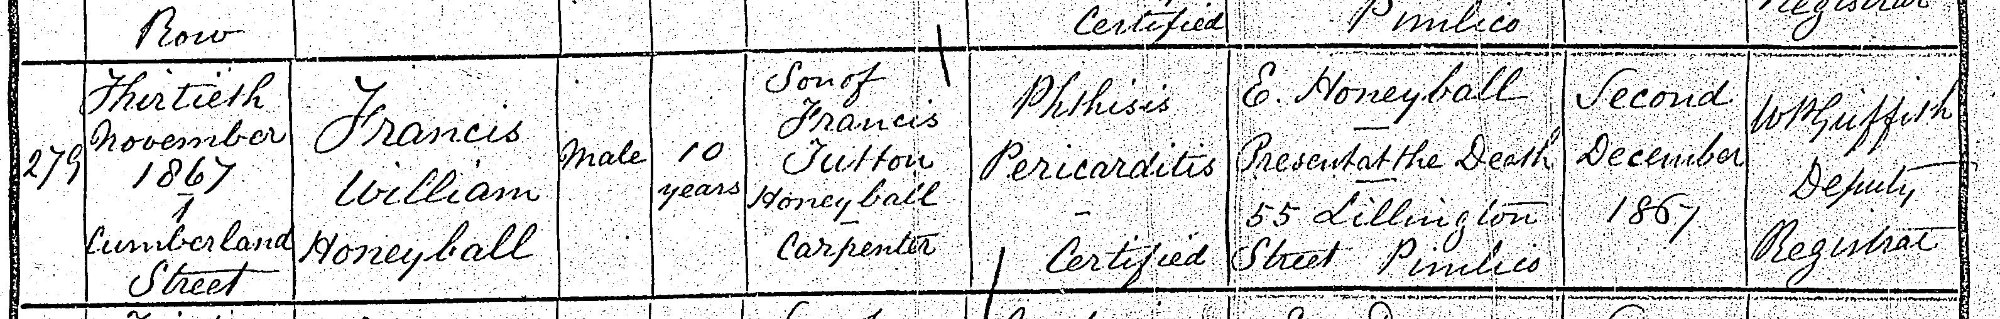 Row
Certified
Pimlico
Registrar
279
Thirtieth
November
1867
1
Cumberland
Street
Francis
William
Honeyball
Male
10
years
Son of
Francis
Tutton
Honeyball
Carpenter
Phthisis
Pericarditis
Certified
E. Honeyball
Present at the Death
55 Lillington
Street Pimlico
Second
December
1867
W P Griffith
Deputy
Registrar